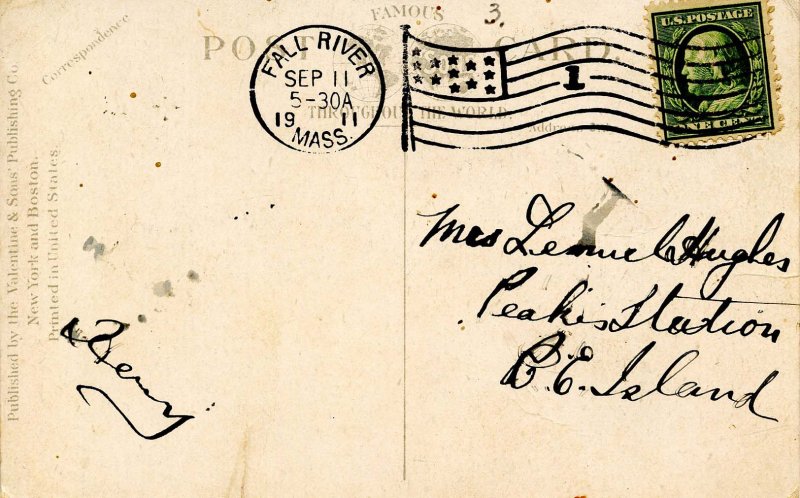 3.
FAMOUS
POST CARD.
THROUGHOUT THE WORLD.
Correspondence
FALL RIVER
SEP 11
5-30A
19 11
MASS.
1
U.S. POSTAGE
ONE CENT
Published by the Valentine & Sons' Publishing Co.
New York and Boston.
Printed in United States.
Mrs Lemuel Hughes
Peakes Station
P. E. Island
Henry